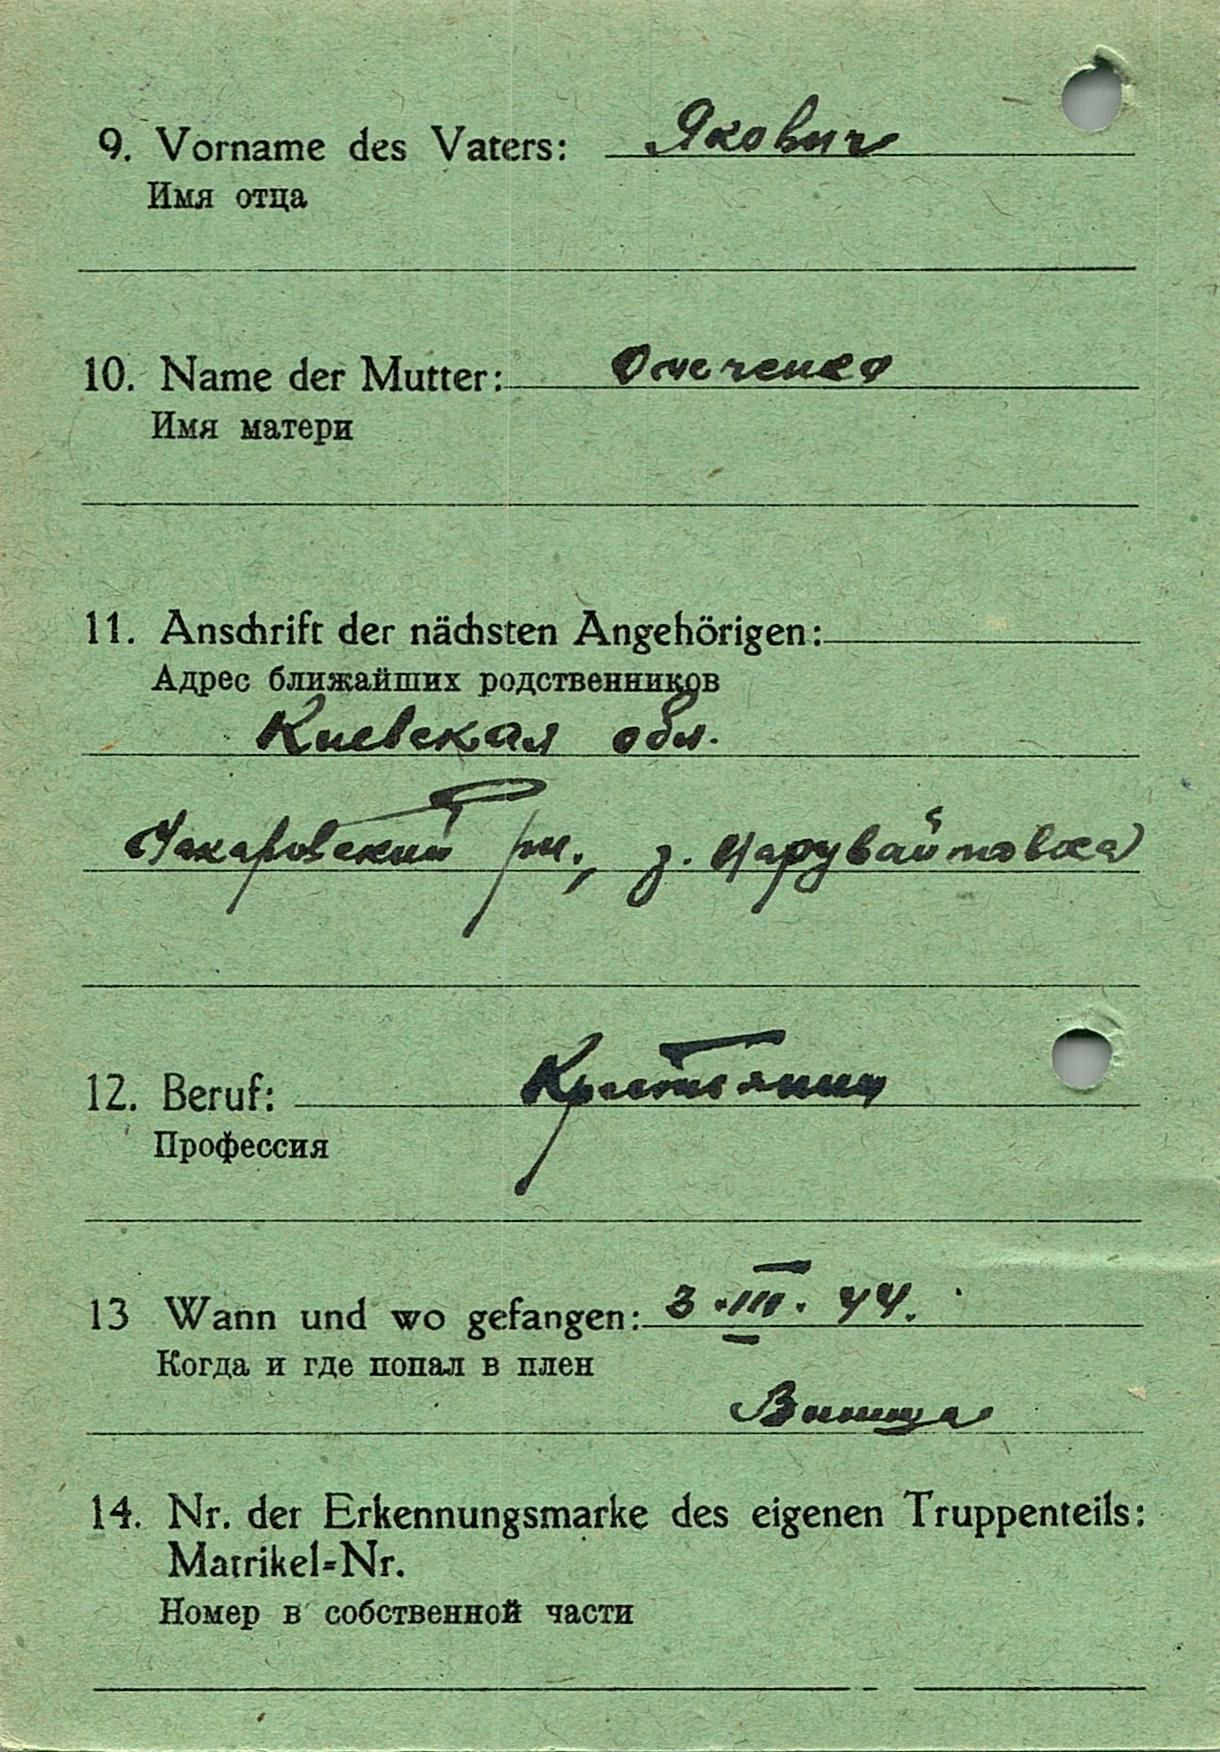 9. Vorname des Vaters: Якович
Имя отца
10. Name der Mutter:
Имя матери
11. Anschrift der nächsten Angehörigen:
Адрес ближайших родственников
Киевская обл.
Макаровский рн., д.
12. Beruf: Крестьянин
Профессия
13 Wann und wo gefangen: 3.III.44.
Когда и где попал в плен
14. Nr. der Erkennungsmarke des eigenen Truppenteils:
Matrikel-Nr.
Номер в собственной части